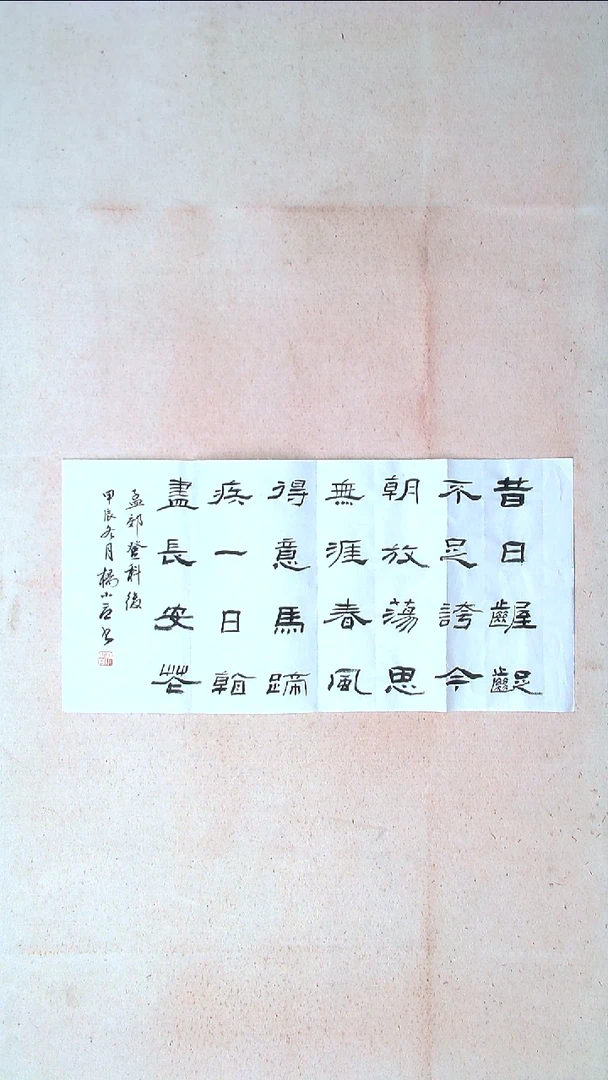 昔日齷齪
不足誇今
朝放蕩思
無涯春風
得意馬蹄
疾一日
盡長安花
孟郊登科後
甲辰冬月楊小